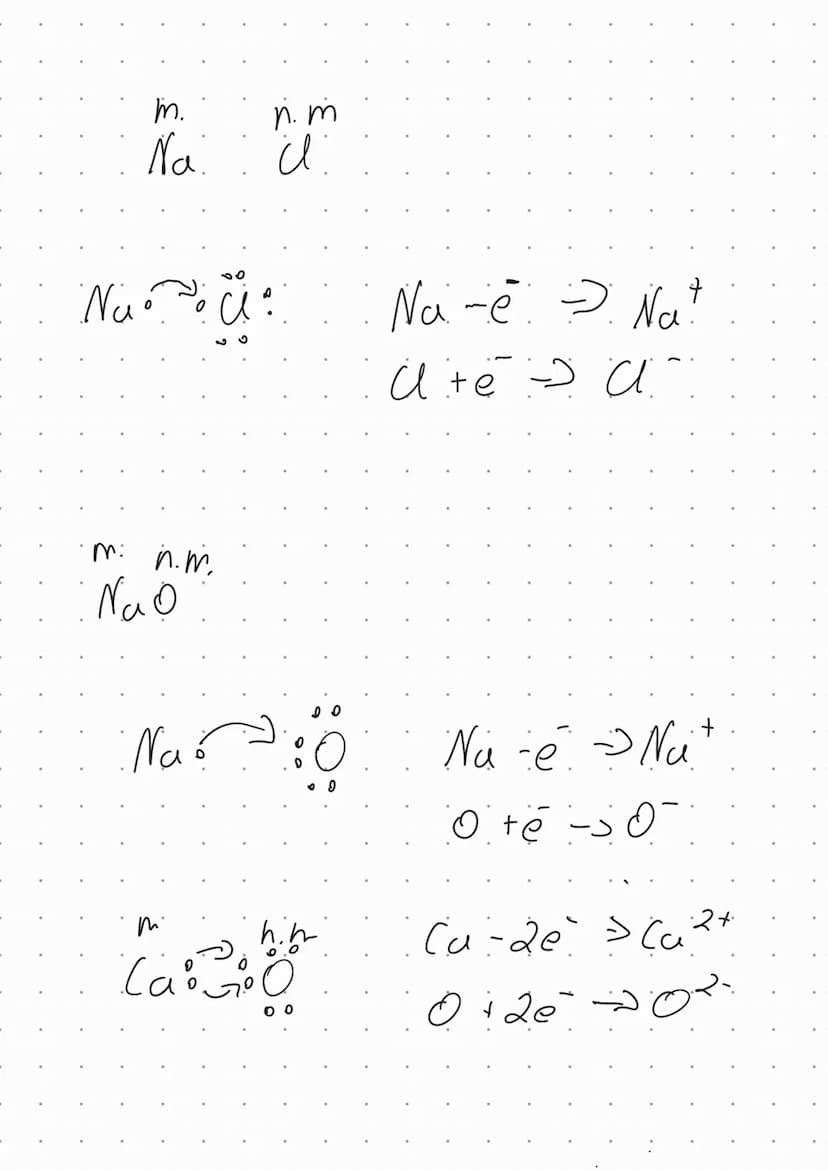 m. n.m
Na Cl
Na Cl
Na -e⁻ → Na⁺
Cl +e⁻ → Cl⁻
m. n.m.
NaO
Na O
Na -e⁻ → Na⁺
O +e⁻ → O⁻
m n.m
Ca O
Ca -2e⁻ → Ca²⁺
O +2e⁻ → O²⁻